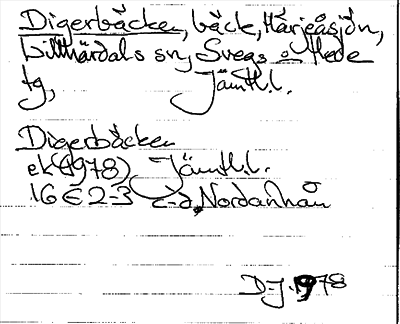 Digerbäcken, bäck, Härjeåsjön,
Lillhärdals sn, Svegs o Hede
tg, Jämtl.l.
Digerbäcken
ek (1978) Jämtl.l.
16E2-3 c-d, Nordanhån
D-J. 1978